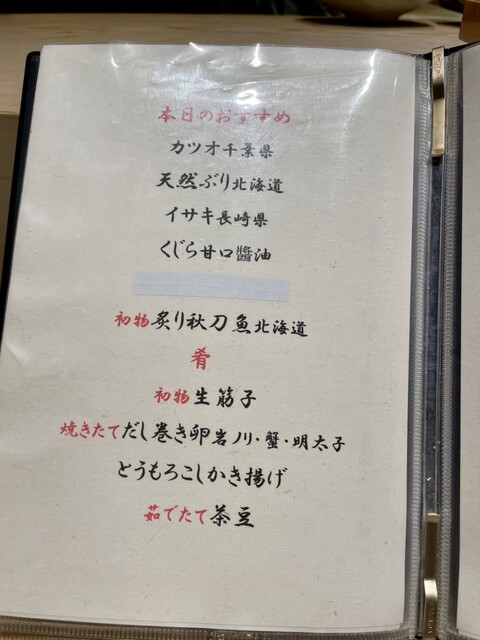 本日のおすすめ
カツオ千葉県
天然ぶり北海道
イサキ長崎県
くじら甘口醬油
初物炙り秋刀魚北海道
肴
初物生筋子
焼きたてだし巻き卵岩ノリ・蟹・明太子
とうもろこしかき揚げ
茹でたて茶豆